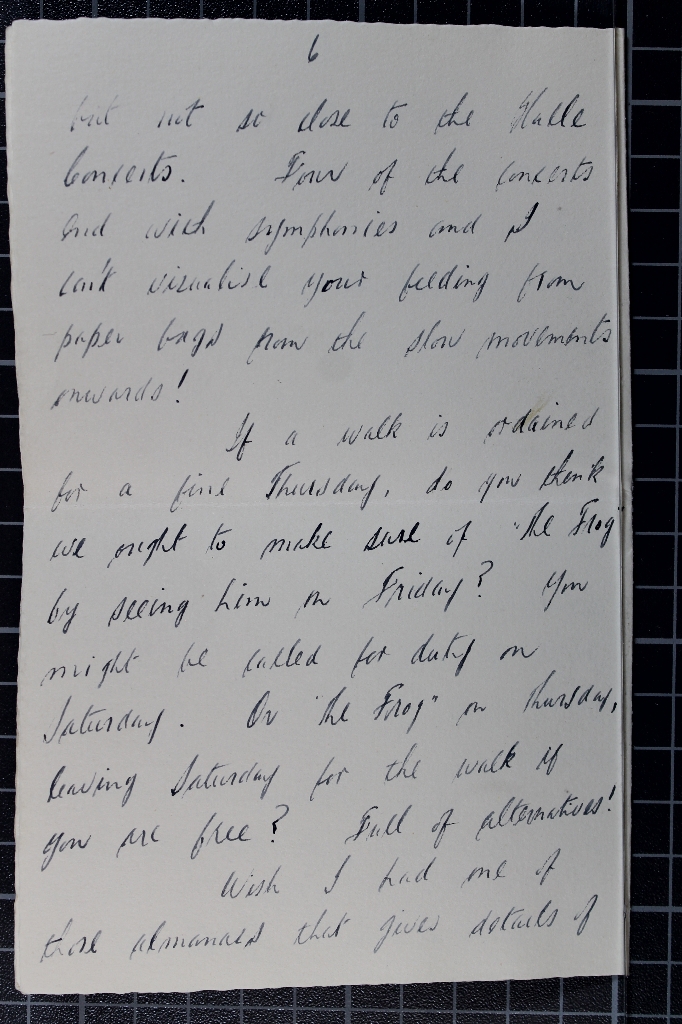 6
but not so close to the Halle
Concerts. Four of the concerts
end with symphonies and I
can't visualise your feeding from
paper bags from the slow movements
onwards!
If a walk is ordained
for a fine Thursday, do you think
we ought to make sure of "the Frog"
by seeing him on Friday? You
might be called for duty on
Saturday. Or "the Frog" on Thursday,
leaving Saturday for the walk if
you are free? Full of alternatives!
Wish I had one of
those almanacs that gives details of